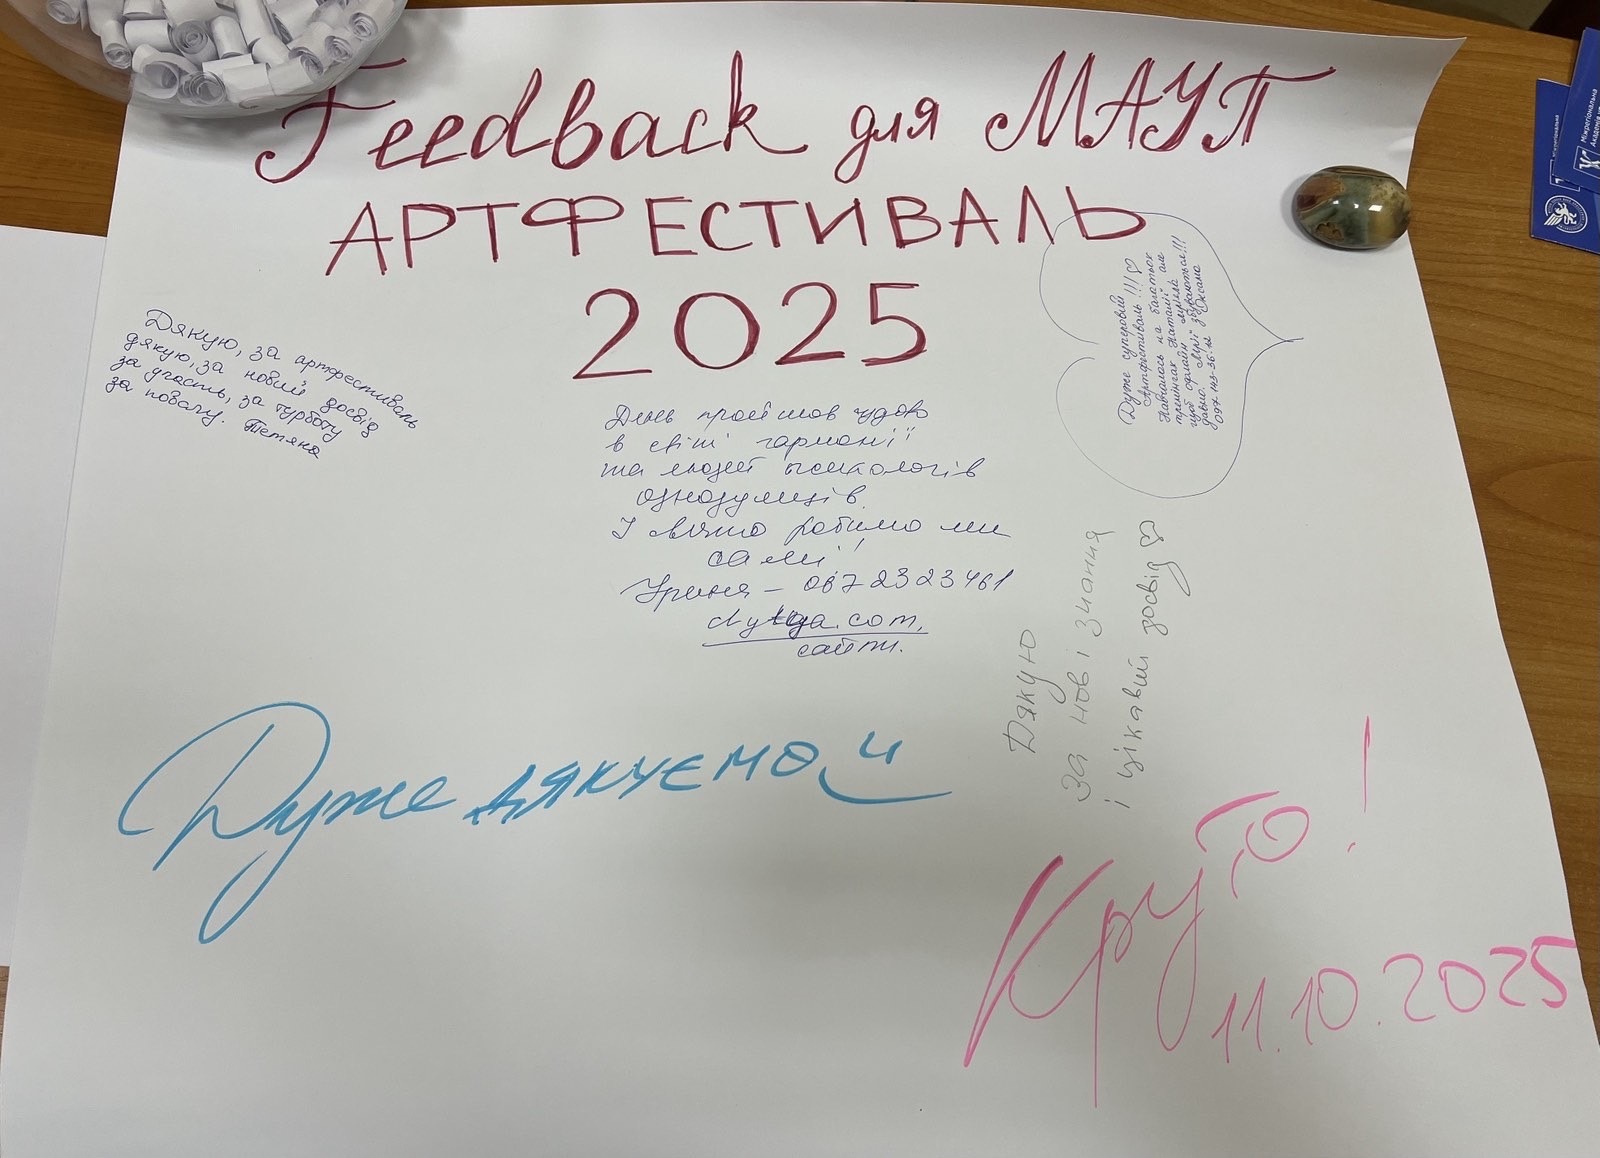 Feedback для МАУП
АРТФЕСТИВАЛЬ
2025
Дякую, за артфестиваль
дякую, за новий досвід
за участь, за турботу
за повагу. Тетяна
День пройшов чудово
в світі гармонії
та людей психологів
однодумців.
І свято робимо ми
самі!
Ірина – 067 2323461
сайт.
Дуже суперовий
Артфестиваль!!! ♡
Навчалась на багатьох
тренінгах Наталії але
щоб офлайн мріяла
давно, мрії збуваються!!!
Оксана
Дякую
за нові знання
і цікавий досвід ♡
Дуже дякуємо
Круто!
11.10.2025
Міжрегіональна